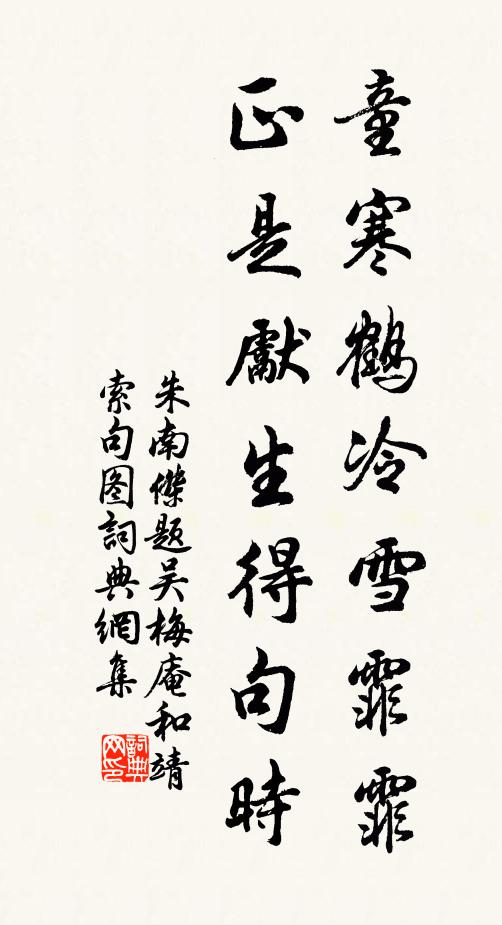 童寒鶴冷雪霏霏
正是獻生得句時
朱南傑題吴梅庵和靖
索句图詞典網集
詞典网印